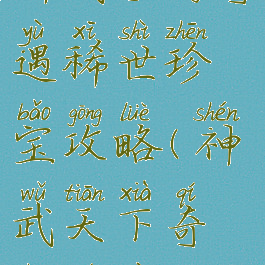 yù xī shì zhēn
遇稀世珍
bǎo gōng lüè shén
宝攻略(神
wǔ tiān xià qí
武天下奇